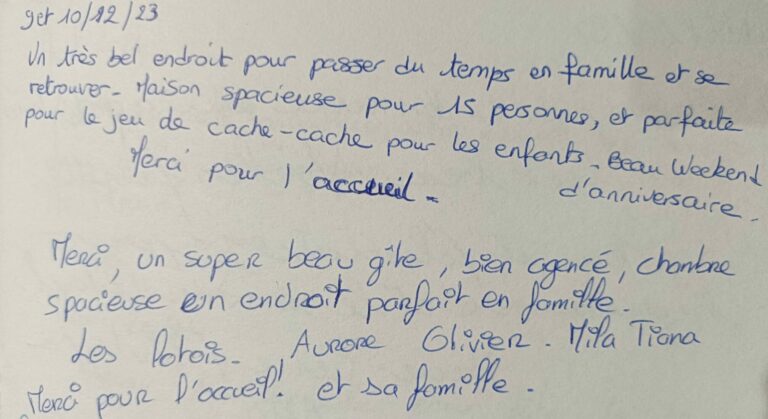 9et 10/12/23
Un très bel endroit pour passer du temps en famille et se
retrouver. Maison spacieuse pour 15 personnes, et parfaite
pour le jeu de cache-cache pour les enfants. Beau Weekend
d'anniversaire.
Merci pour l'accueil.
Merci, un super beau gîte, bien agencé, chambre
spacieuse un endroit parfait en famille.
Les Potois. Aurore Olivier. Mila Tiana
Merci pour l'accueil! et sa famille.